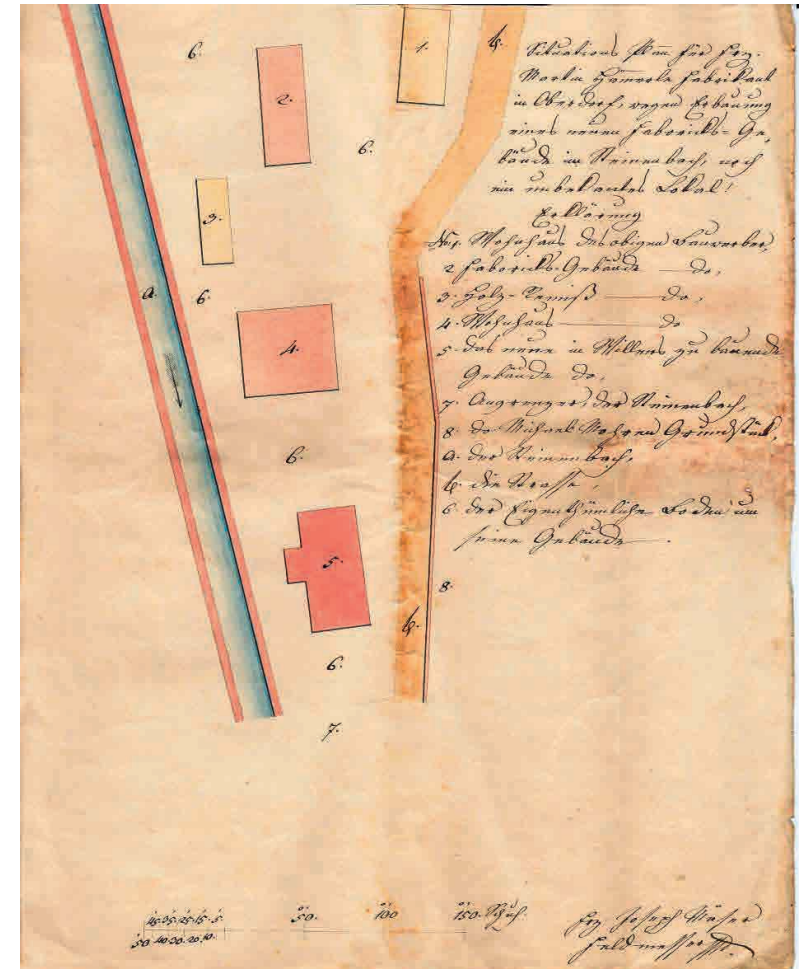 Situations Plan für Hrn.
Martin Hämmerle Fabrikant
in Oberdorf, wegen Erbauung
eines neuen Fabricks-Ge-
bäude in Steinenbach, noch
ein unbekantes Lokal!
Erklärung
No 1. Wohnhaus des obigen Bauwerber,
2 Fabricks-Gebäude — do,
3. Holz-Remiß — do,
4. Wohnhaus — do
5. das neue in Willens zu bauende
Gebäude do,
7. Angrenzer, der Steinenbach,
8. do Michael Mohren Grundstück,
a. der Steinenbach,
b. die Strasse,
6 der Eigenthümliche Boden um
seine Gebäude —.
1.
2.
3.
4.
5.
6.
6.
6.
6.
6.
7.
8.
a.
b.
b.
45. 35. 25. 15. 5.
50. 40. 30. 20. 10.
50. 100 150. Schuh.
Joseph Mäser
Feldmesser